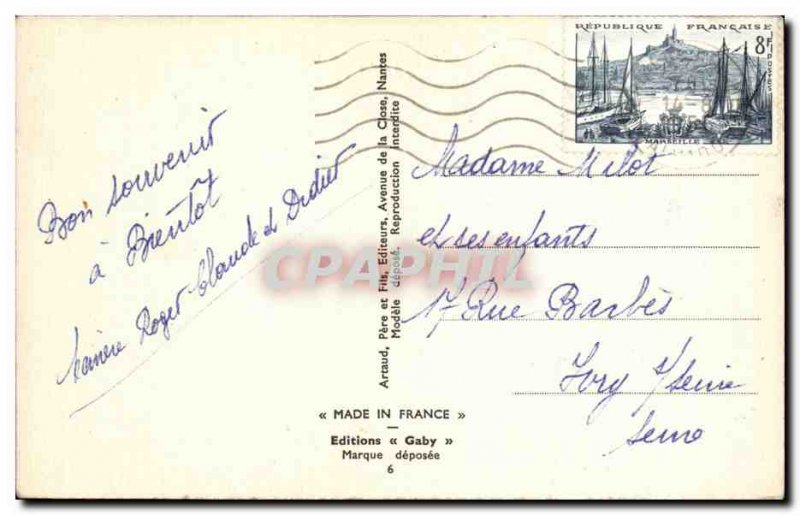 Bon souvenir
à Bientôt
Roger Claude et Didier
CPAPHIL
Artaud, Père et Fils, Editeurs, Avenue de la Close, Nantes
Modèle déposé. Reproduction Interdite
« MADE IN FRANCE »
Editions « Gaby »
Marque déposée
6
RÉPUBLIQUE FRANÇAISE
8F
POSTES
MARSEILLE
Madame Milot
et ses enfants
17 Rue Barbès
Ivry s/Seine
Seine